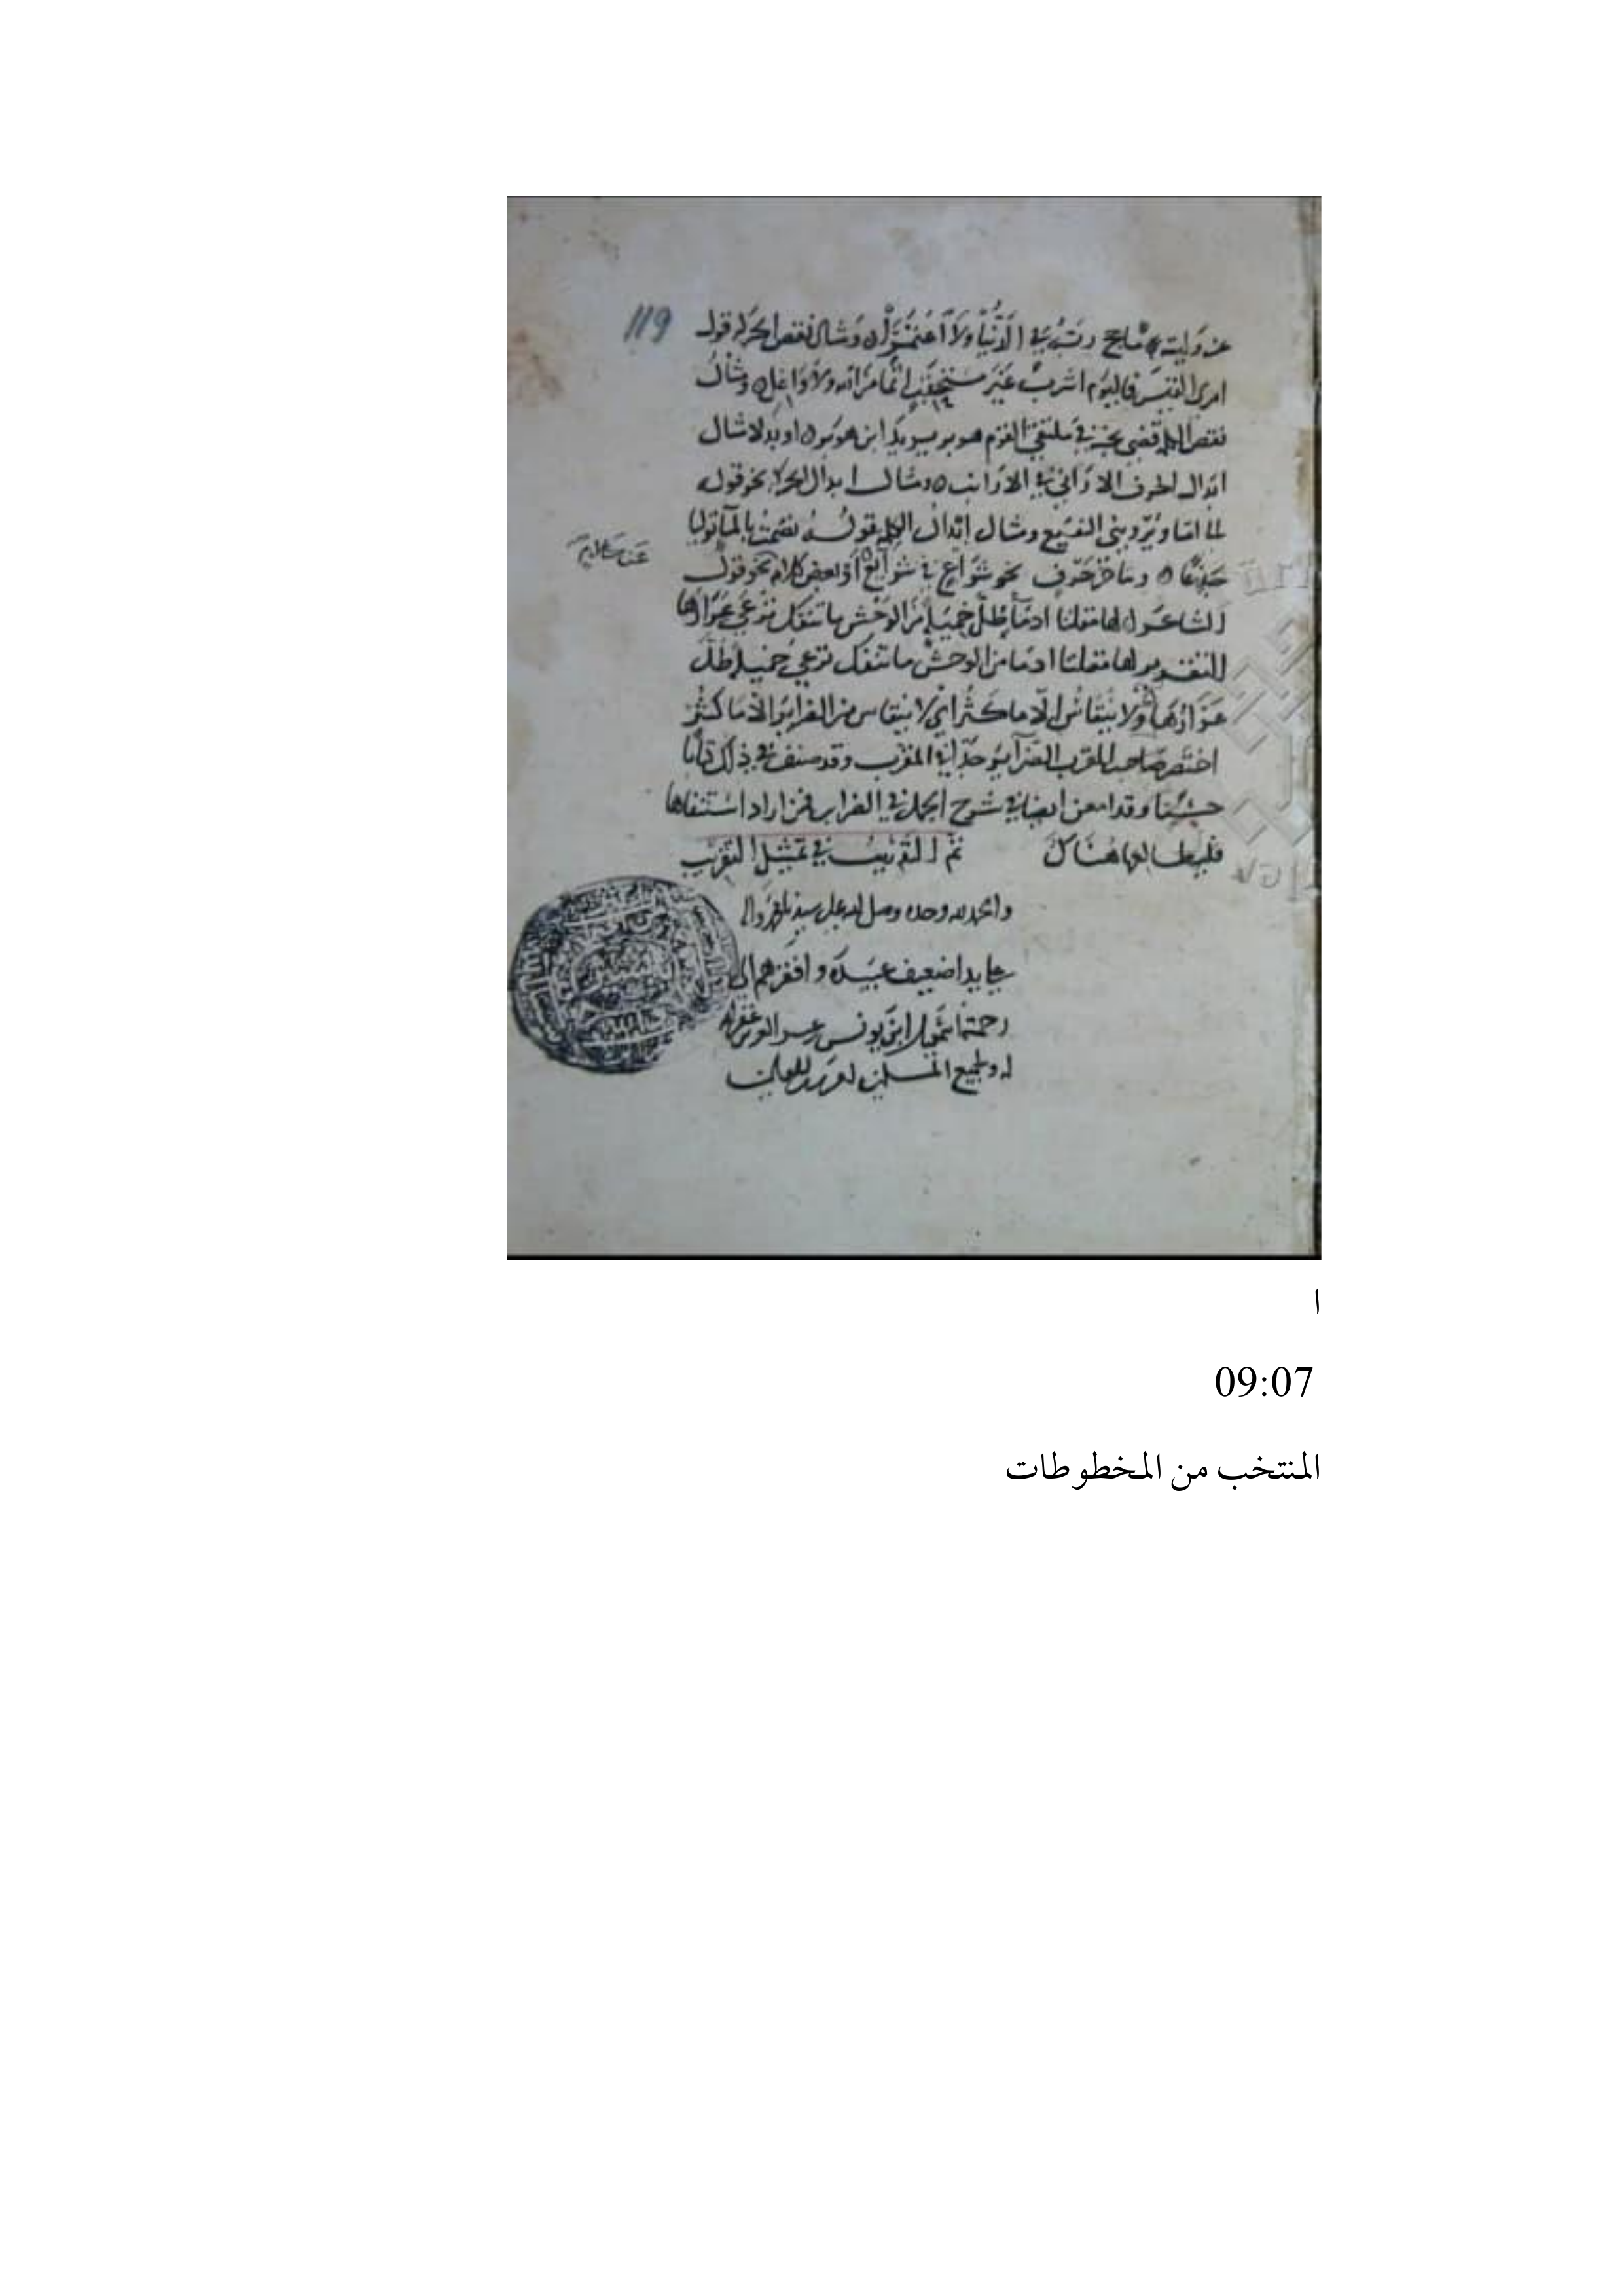 119
في الدنيا ولا اعتزل ومثال نقص الحركة قوله
امرئ القيس فاليوم اشرب غير مستحقب اثما من الله ولا واغل ومثال
نقص الكلمة قضى نحبه في ملتقى القوم هوبر يريد ابن هوبر او بدلا مثال
ابدال الحرف الاراني في الارانب ومثال ابدال الحركة نحو قوله
ومثال ابدال الكلمة قوله
نحو شواع في شوائع او بعض كلام نحو قول
الشاعر لها مقلتا ادماء طل خميلة من الوحش ما تنفك ترعى عرارها
التقدير لها مقلتا ادماء من الوحش ما تنفك ترعى خميلة طل
عرارها ولا ينقاس الا ما كثر اي لا ينقاس من الضرائر الا ما كثر
اختصر صاحب المقرب الضرائر جدا في المقرب وقد صنف في ذلك كتابا
حسنا وقد امعن ايضا في شرح الجمل في الضرائر فمن اراد استيفاها
فليطالعها هناك تم التقريب في تمثيل التقريب
والحمد لله وحده وصلى الله على سيدنا محمد واله
على يد اضعف عبيده وافقرهم الى
رحمته ابن يونس غفر الله
له ولجميع المسلمين
ا
09:07
المنتخب من المخطوطات